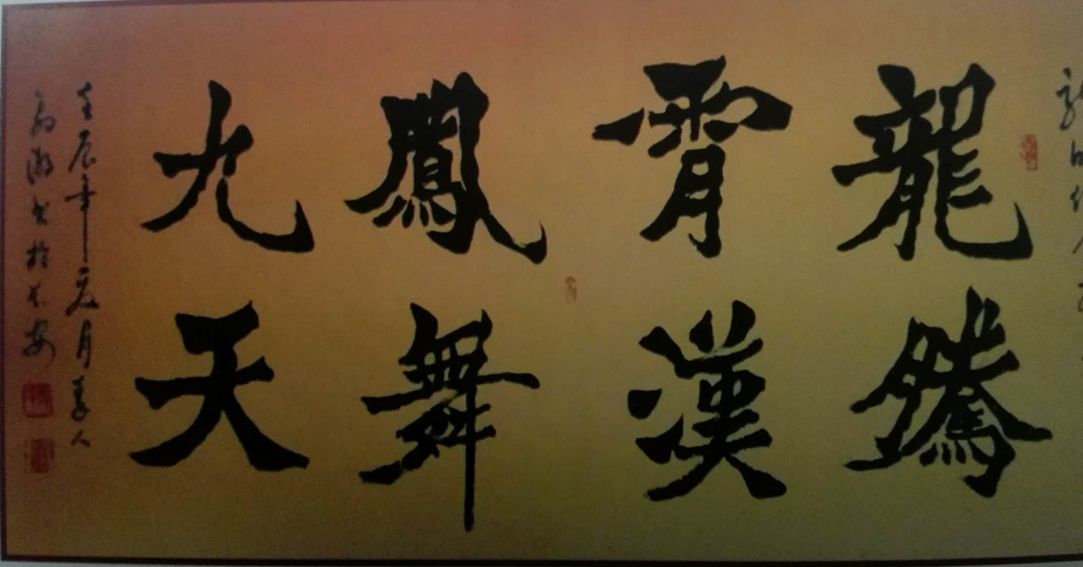 龍騰
霄漢
鳳舞
九天
壬辰年元月
書於長安